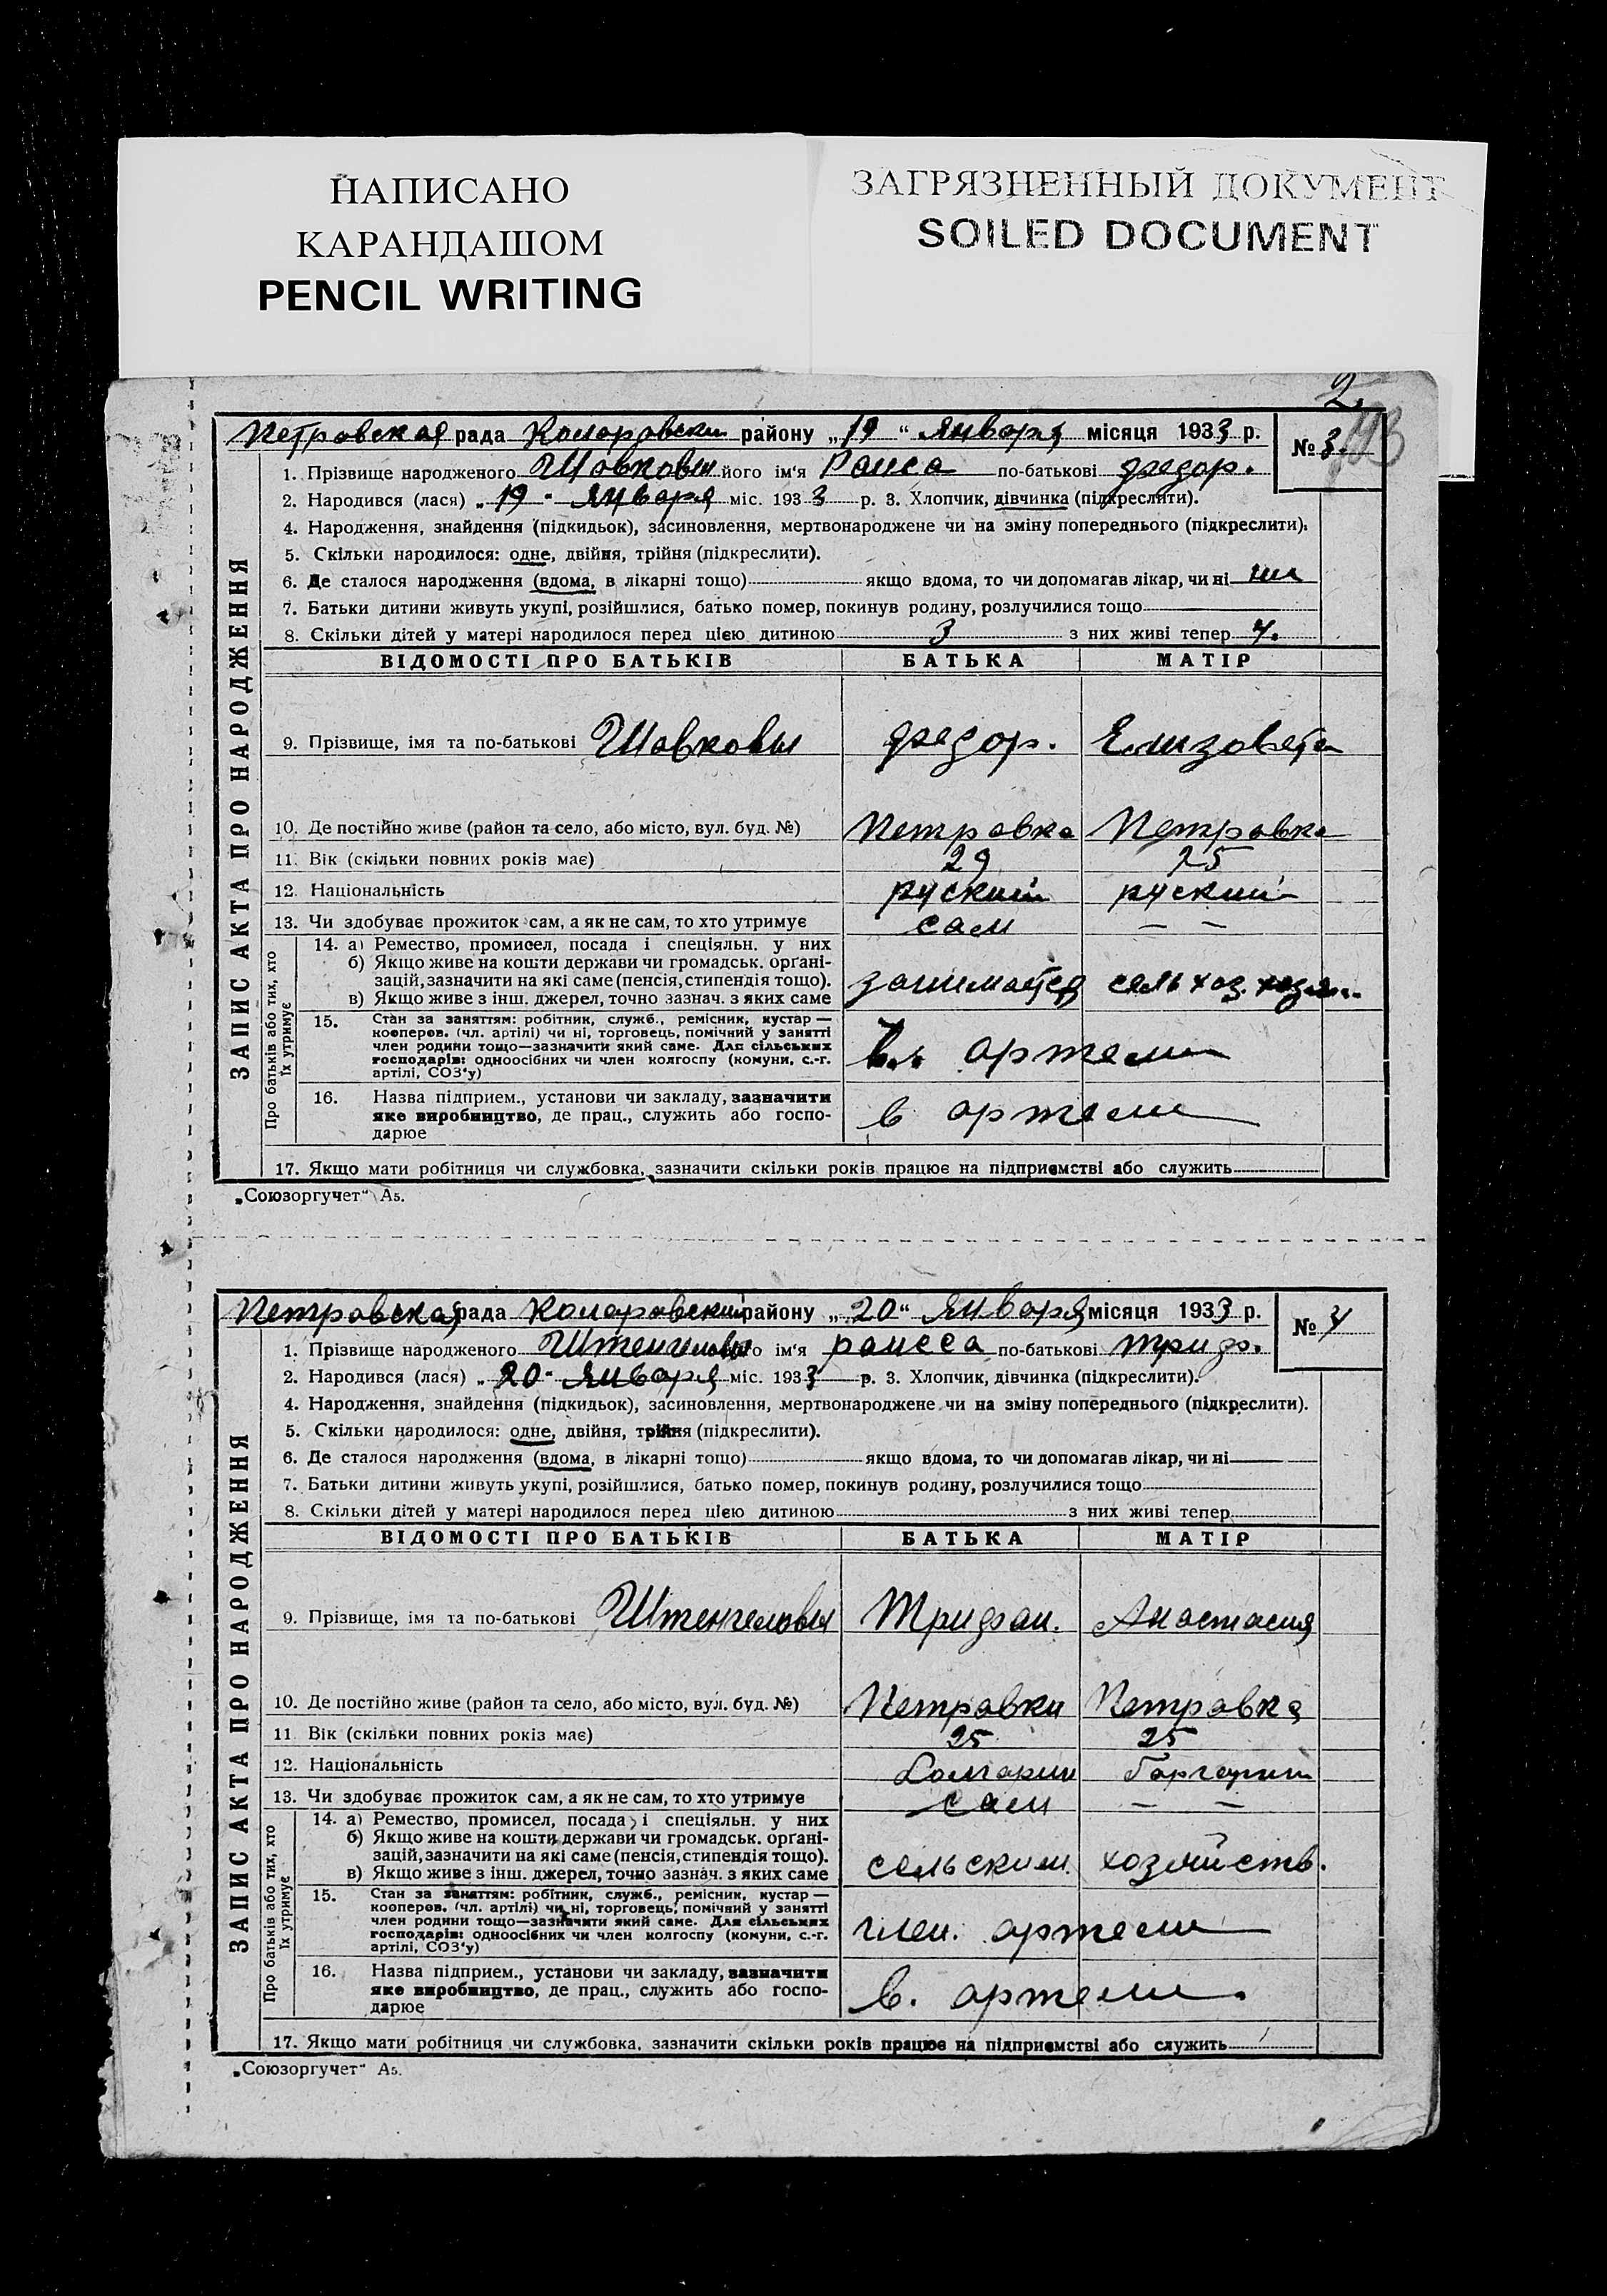 НАПИСАНО
КАРАНДАШОМ
PENCIL WRITING
ЗАГРЯЗНЕННЫЙ ДОКУМЕНТ
SOILED DOCUMENT
2.
Петровская рада Коларовски району „19“ Января місяця 1933 р.
№ 3.
1. Прізвище народженого Шовковы його ім‘я Раиса по-батькові Федор.
2. Народився (лася) „19“ Января міс. 1933 р. 3. Хлопчик, дівчинка (підкреслити).
4. Народження, знайдення (підкидьок), засиновлення, мертвонароджене чи на зміну попереднього (підкреслити).
5. Скільки народилося: одне, двійня, трійня (підкреслити).
6. Де сталося народження (вдома, в лікарні тощо) якщо вдома, то чи допомагав лікар, чи ні
7. Батьки дитини живуть укупі, розійшлися, батько помер, покинув родину, розлучилися тощо
8. Скільки дітей у матері народилося перед цією дитиною 3 з них живі тепер 4.
ЗАПИС АКТА ПРО НАРОДЖЕННЯ
ВІДОМОСТІ ПРО БАТЬКІВ БАТЬКА МАТІР
9. Прізвище, імя та по-батькові Шовковы Федор. Елизовета
10. Де постійно живе (район та село, або місто, вул. буд. №) Петровка Петровка
11. Вік (скільки повних років має) 29 25
12. Національність руский руский
13. Чи здобуває прожиток сам, а як не сам, то хто утримує сам — —
Про батьків або тих, хто їх утримує
14. а) Ремество, промисел, посада і спеціяльн. у них
б) Якщо живе на кошти держави чи громадськ. органі-
зацій, зазначити на які саме (пенсія, стипендія тощо).
в) Якщо живе з інш. джерел, точно зазнач. з яких саме
занимается сельхоз. хозяи..
15. Стан за заняттям: робітник, служб., ремісник, кустар —
кооперов. (чл. артілі) чи ні, торговець, помічний у занятті
член родини тощо—зазначити який саме. Для сільських
господарів: одноосібних чи член колгоспу (комуни, с.-г.
артілі, СОЗ‘у)
артели
16. Назва підприєм., установи чи закладу, зазначити
яке виробництво, де прац., служить або госпо-
дарює
в артели
17. Якщо мати робітниця чи службовка, зазначити скільки років працює на підприємстві або служить
„Союзоргучет“ А5.
Петровская рада Коларовский району „20“ Января місяця 1933 р.
№ 4
1. Прізвище народженого Штенгеловы його ім‘я раисса по-батькові Триф.
2. Народився (лася) „20“ Января міс. 1933 р. 3. Хлопчик, дівчинка (підкреслити).
4. Народження, знайдення (підкидьок), засиновлення, мертвонароджене чи на зміну попереднього (підкреслити).
5. Скільки народилося: одне, двійня, трійня (підкреслити).
6. Де сталося народження (вдома, в лікарні тощо) якщо вдома, то чи допомагав лікар, чи ні
7. Батьки дитини живуть укупі, розійшлися, батько помер, покинув родину, розлучилися тощо
8. Скільки дітей у матері народилося перед цією дитиною з них живі тепер
ЗАПИС АКТА ПРО НАРОДЖЕННЯ
ВІДОМОСТІ ПРО БАТЬКІВ БАТЬКА МАТІР
9. Прізвище, імя та по-батькові Штенгеловы Трифан. Анастасия
10. Де постійно живе (район та село, або місто, вул. буд. №) Петровки Петровка
11. Вік (скільки повних років має) 25 25
12. Національність Болгарин
13. Чи здобуває прожиток сам, а як не сам, то хто утримує сам — —
Про батьків або тих, хто їх утримує
14. а) Ремество, промисел, посада і спеціяльн. у них
б) Якщо живе на кошти держави чи громадськ. органі-
зацій, зазначити на які саме (пенсія, стипендія тощо).
в) Якщо живе з інш. джерел, точно зазнач. з яких саме
сельским. хозяйств.
15. Стан за заняттям: робітник, служб., ремісник, кустар —
кооперов. (чл. артілі) чи ні, торговець, помічний у занятті
член родини тощо—зазначити який саме. Для сільських
господарів: одноосібних чи член колгоспу (комуни, с.-г.
артілі, СОЗ‘у)
член. артели
16. Назва підприєм., установи чи закладу, зазначити
яке виробництво, де прац., служить або госпо-
дарює
в. артели.
17. Якщо мати робітниця чи службовка, зазначити скільки років працює на підприємстві або служить
„Союзоргучет“ А5.